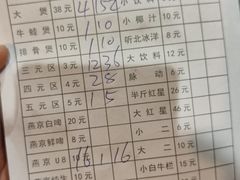 大 煲 38元 4158
牛蛙煲 10元 110 小椰汁 10元
排骨煲 10元 110 听北冰洋 8元
三元区 3元 1236 大饮料 12元
四元区 4元 28 脉 动 6元
五元区 5元 15 半斤红星 26元
燕京白啤 20元 大红星 46元
燕京鲜啤 10元 小 二
燕京U8 10元 116 大 二
小白牛栏 15元